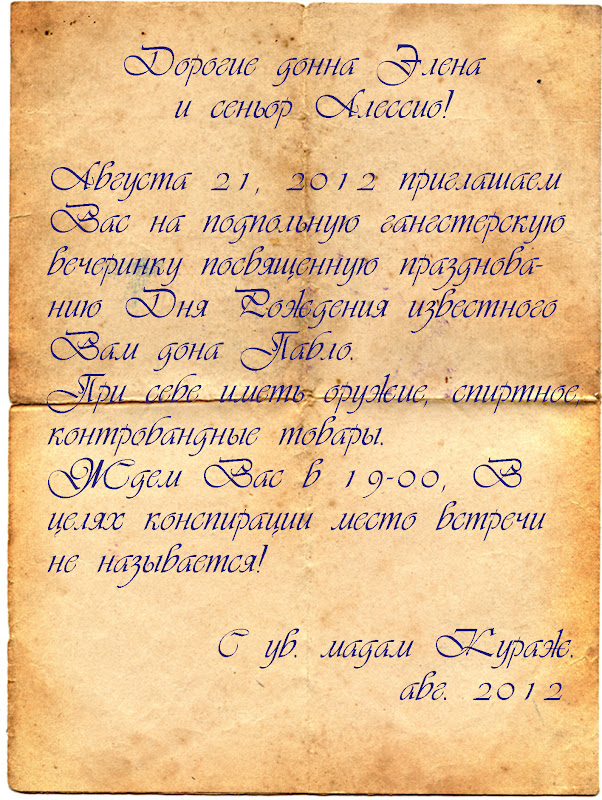 Дорогие донна Элена
и сеньор Алессио!
Августа 21, 2012 приглашаем
Вас на подпольную гангстерскую
вечеринку посвященную празднова-
нию Дня Рождения известного
Вам дона Пабло.
При себе иметь оружие, спиртное,
контробандные товары.
Ждем Вас в 19-00, В
целях конспирации место встречи
не называется!
С ув. мадам Кураж.
авг. 2012